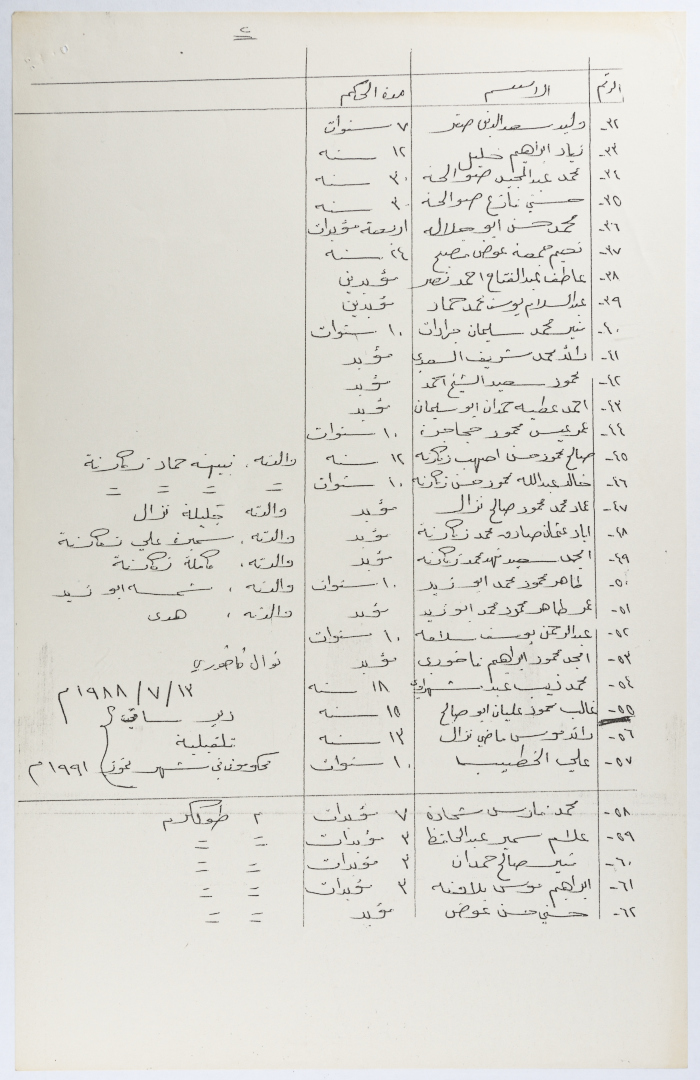 ٢
الرقم الاسم مدة الحكم
٣٢- وليد سعد الدين صقر ٧ سنوات
٣٣- زياد ابراهيم خليل ١٢ سنه
٣٤- محمد عبد المجيد صوالحه ٣٠ سنه
٣٥- حسني فازع صوالحه ٣٠ سنه
٣٦- محمد حسن ابو جلاله اربعة مؤبدات
٣٧- نعيم جمعه عوض مصبح ٢٤ سنه
٣٨- عاطف عبد الفتاح احمد نصر مؤبدين
٣٩- عبد السلام يوسف محمد حماد مؤبدين
٤٠- منير محمد سليمان جرادات ١٠ سنوات
٤١- رائد محمد شريف السعدي مؤبد
٤٢- محمود سعيد الشيخ احمد مؤبد
٤٣- احمد عطيه حمدان ابو سليمان مؤبد
٤٤- عمر عيسى محمود حجاجرة ١٠ سنوات
٤٥- صالح محمود حسن زكارنه ١٢ سنه والدته. نبيهه حماد زكارنة
٤٦- خالد عبدالله محمود حسن زكارنه ١٠ سنوات = = = =
٤٧- عماد محمد محمود صالح نزال مؤبد والدته جليلة نزال
٤٨- اياد عثمان صادق محمد زكارنة مؤبد والدته. سميرة علي زكارنة
٤٩- امجد سعيد فهد محمد زكارنه مؤبد والدته. كاملة زكارنة
٥٠- طاهر محمود محمد ابو زيد ١٠ سنوات والدته، شمسه ابو زيد
٥١- عمر طاهر محمود محمد ابو زيد مؤبد والدته، هدى
٥٢- عبد الرحمن يوسف سلامه ١٠ سنوات
٥٣- امجد محمود ابراهيم ناخوري مؤبد نوال ناخوري
٥٤- محمد ذيب عبد ١٨ سنه ١٩٨٨/٧/١٣م
٥٥- غالب محمود عليان ابو صالح ١٥ سنه دير
٥٦- رائد موسى ماضي نزال ١٣ سنه قلقيلية
٥٧- علي الخطيب ١٠ سنوات محكومون في شهر تموز ١٩٩١م
٥٨- محمد فارس شحادة ٧ مؤبدات م طولكرم
٥٩- علام سمير عبد الحافظ ٣ مؤبدات = =
٦٠- منير صالح حمدان ٣ مؤبدات = =
٦١- ابراهيم موسى بلاونه ٣ مؤبدات = =
٦٢- حسني حسن عوض مؤبد = =